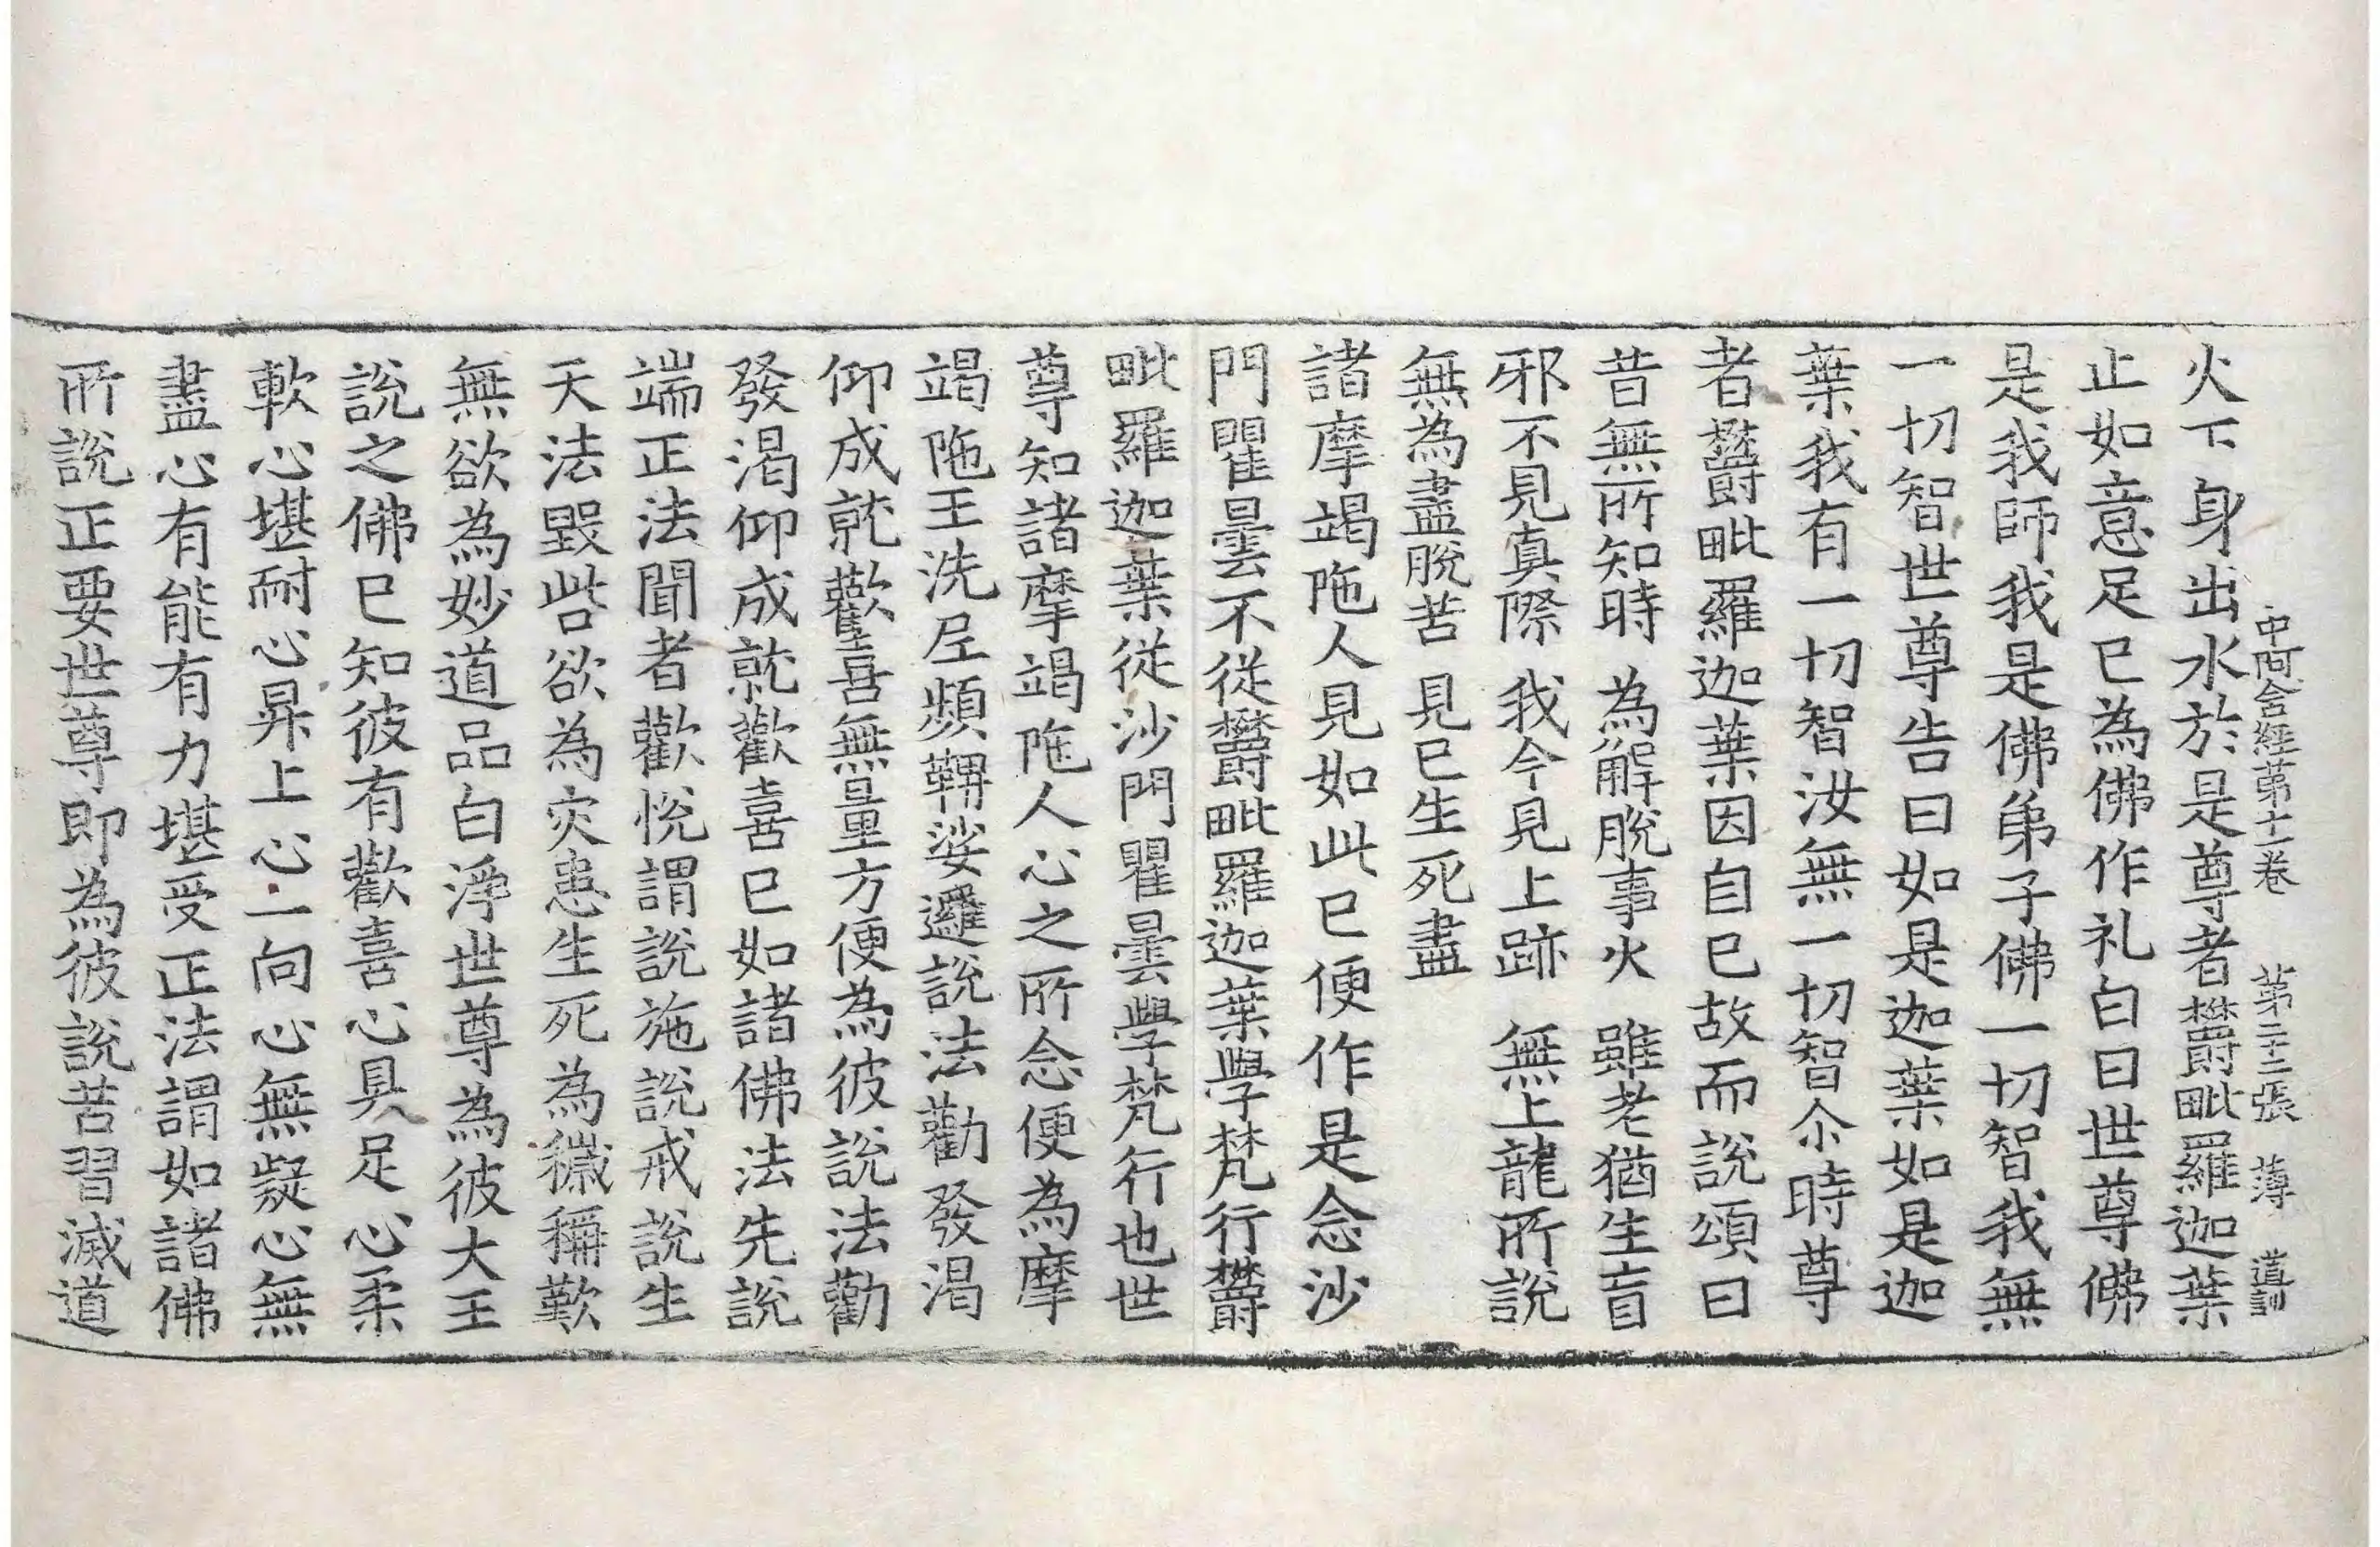 中阿含經第十一卷　第二十二張　薄　道訓
火下身出水於是尊者欝毗羅迦葉
止如意足已為佛作礼白曰世尊佛
是我師我是佛弟子佛一切智我無
一切智世尊告曰如是迦葉如是迦
葉我有一切智汝無一切智尒時尊
者欝毗羅迦葉因自已故而說頌曰
昔無所知時　為解脫事火　雖老猶生盲
邪不見真際　我今見上跡　無上龍所說
無為盡脫苦　見已生死盡
諸摩竭陁人見如此已便作是念沙
門瞿曇不從欝毗羅迦葉學梵行欝
毗羅迦葉從沙門瞿曇學梵行也世
尊知諸摩竭陁人心之所念便為摩
竭陁王洗尼頻鞞娑邏說法勸發渴
仰成就歡喜無量方便為彼說法勸
發渴仰成就歡喜已如諸佛法先說
端正法聞者歡悅謂說施說戒說生
天法毀呰欲為灾患生死為穢稱歎
無欲為妙道品白淨世尊為彼大王
說之佛已知彼有歡喜心具足心柔
軟心堪耐心昇上心一向心無疑心無
盡心有能有力堪受正法謂如諸佛
所說正要世尊即為彼說苦習滅道